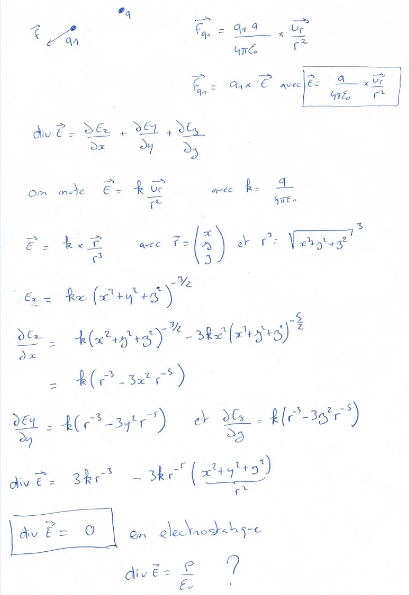 q
F⃗ q₁
F⃗q₁ = q₁ q / 4πε₀ × u⃗r / r²
F⃗q₁ = q₁ × E⃗ avec E⃗ = q / 4πε₀ × u⃗r / r²
div E⃗ = ∂Ex/∂x + ∂Ey/∂y + ∂Ez/∂z
on note E⃗ = k u⃗r / r² avec k = q / 4πε₀
E⃗ = k × r⃗ / r³ avec r⃗ = (x y z) et r³ = √(x²+y²+z²)³
Ex = kx (x²+y²+z²)^(-3/2)
∂Ex/∂x = k(x²+y²+z²)^(-3/2) - 3kx²(x²+y²+z²)^(-5/2)
= k(r⁻³ - 3x² r⁻⁵)
∂Ey/∂y = k(r⁻³ - 3y² r⁻⁵) et ∂Ez/∂z = k(r⁻³ - 3z² r⁻⁵)
div E⃗ = 3kr⁻³ - 3kr⁻⁵ (x²+y²+z²)
r²
div E⃗ = 0 en electrostatique
div E⃗ = ρ/ε₀ ?